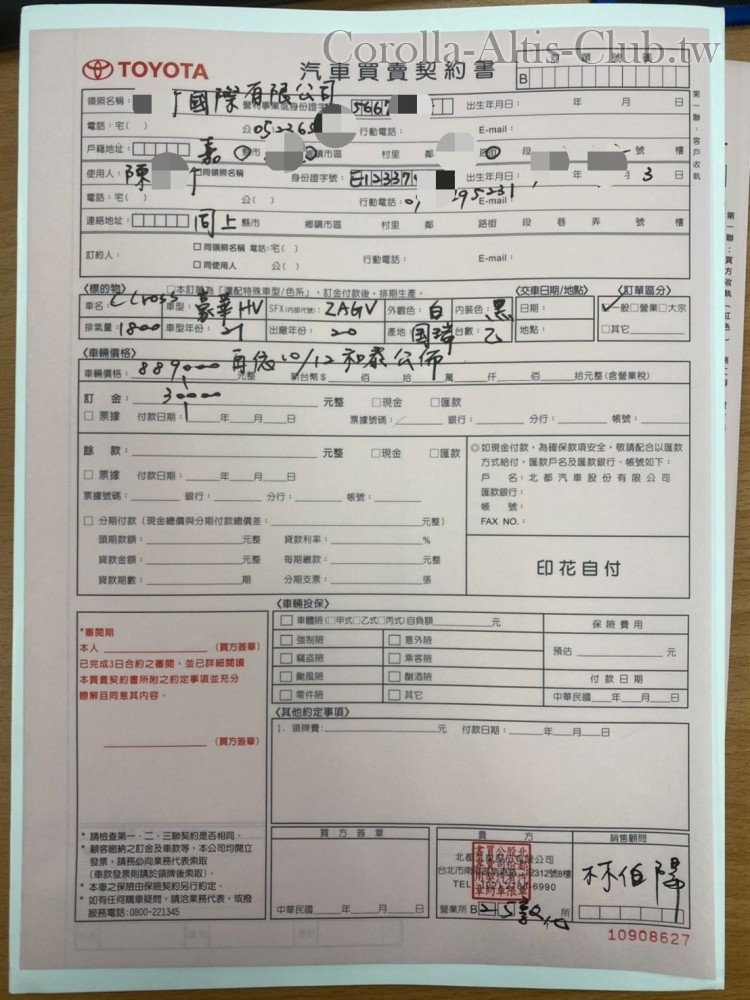 Corolla-Altis-Club.tw
TOYOTA
汽車買賣契約書
B
第一聯：客戶收執
領照名稱：國際有限公司 身份證字 5667 出生年月日： 年 月 日
電話：宅( ) 公 052265 行動電話： E-mail：
戶籍地址： 嘉 市 鄉鎮市區 村里 鄰 路 段 號 樓
使用人：陳 同領照名稱 身份證字號：E12337 出生年月日： 月 3 日
電話：宅( ) 公( ) 行動電話：0 95231 E-mail：
連絡地址： 同上 縣市 鄉鎮市區 村里 鄰 路街 段 巷 弄 號 樓
訂約人： □同領照名稱 電話：宅( ) 行動電話： E-mail：
□同使用人 公( )
〈標的物〉 □本訂單為「選配特殊車型/色系」，訂金付款後，排期生產。 〈交車日期/地點〉 〈訂單區分〉
車名：C Cross 車型：豪華HV SFX(內部代號)：ZAGV 外觀色：白 內裝色：黑 日期： 一般□營業□大宗
排氣量：1800 車型年份：21 出廠年份：20 產地：國瑞 台數：乙 地點： □其它
〈車輛價格〉
車輛價格：889000 元整 新台幣$ 佰 拾 萬 仟 佰 拾元整(含營業稅)
再依10/12和泰公佈
訂 金：30000 元整 □現金 □匯款
□票據 付款日期： 年 月 日 票據號碼： 銀行： 分行： 帳號：
餘 款： 元整 □現金 □匯款
□票據 付款日期： 年 月 日
票據號碼： 銀行： 分行： 帳號：
□分期付款（現金總價與分期付款總價差： 元整）
頭期款額： 元整 貸款利率： %
貸款金額： 元整 每期繳款： 元整
貸款期數： 期 分期支票： 張
◎如現金付款，為確保款項安全，敬請配合以匯款
方式給付，匯款戶名及匯款銀行、帳號如下：
戶 名：北都汽車股份有限公司
匯款銀行：
帳 號：
FAX NO.：
印花自付
*審閱期
本人 (買方簽章)
已完成3日合約之審閱，並已詳細閱讀
本買賣契約書所附之約定事項並充分
瞭解且同意其內容。
(買方簽章)
〈車輛投保〉
□車體險(□甲式□乙式□丙式)自負額 元 保險費用
□強制險 □意外險
□竊盜險 □乘客險 預估 元
□颱風險 □酗酒險 付款日期
□零件險 □其它 中華民國 年 月 日
〈其他約定事項〉
1. 領牌費： 元 付款日期： 年 月 日
* 請檢查第一、二、三聯契約是否相同。
* 顧客繳納之訂金及車款等，本公司均開立
發票，請務必向業務代表索取
(車款發票則請於領牌後索取)。
* 本車之保險由保險契約另行約定。
* 如有任何購車疑問，請洽業務代表，或撥
服務電話：0800-221345
買方簽章
中華民國 年 月 日
賣 方
TEL
6990
營業所 B 25 所
銷售顧問
林伯陽
10908627